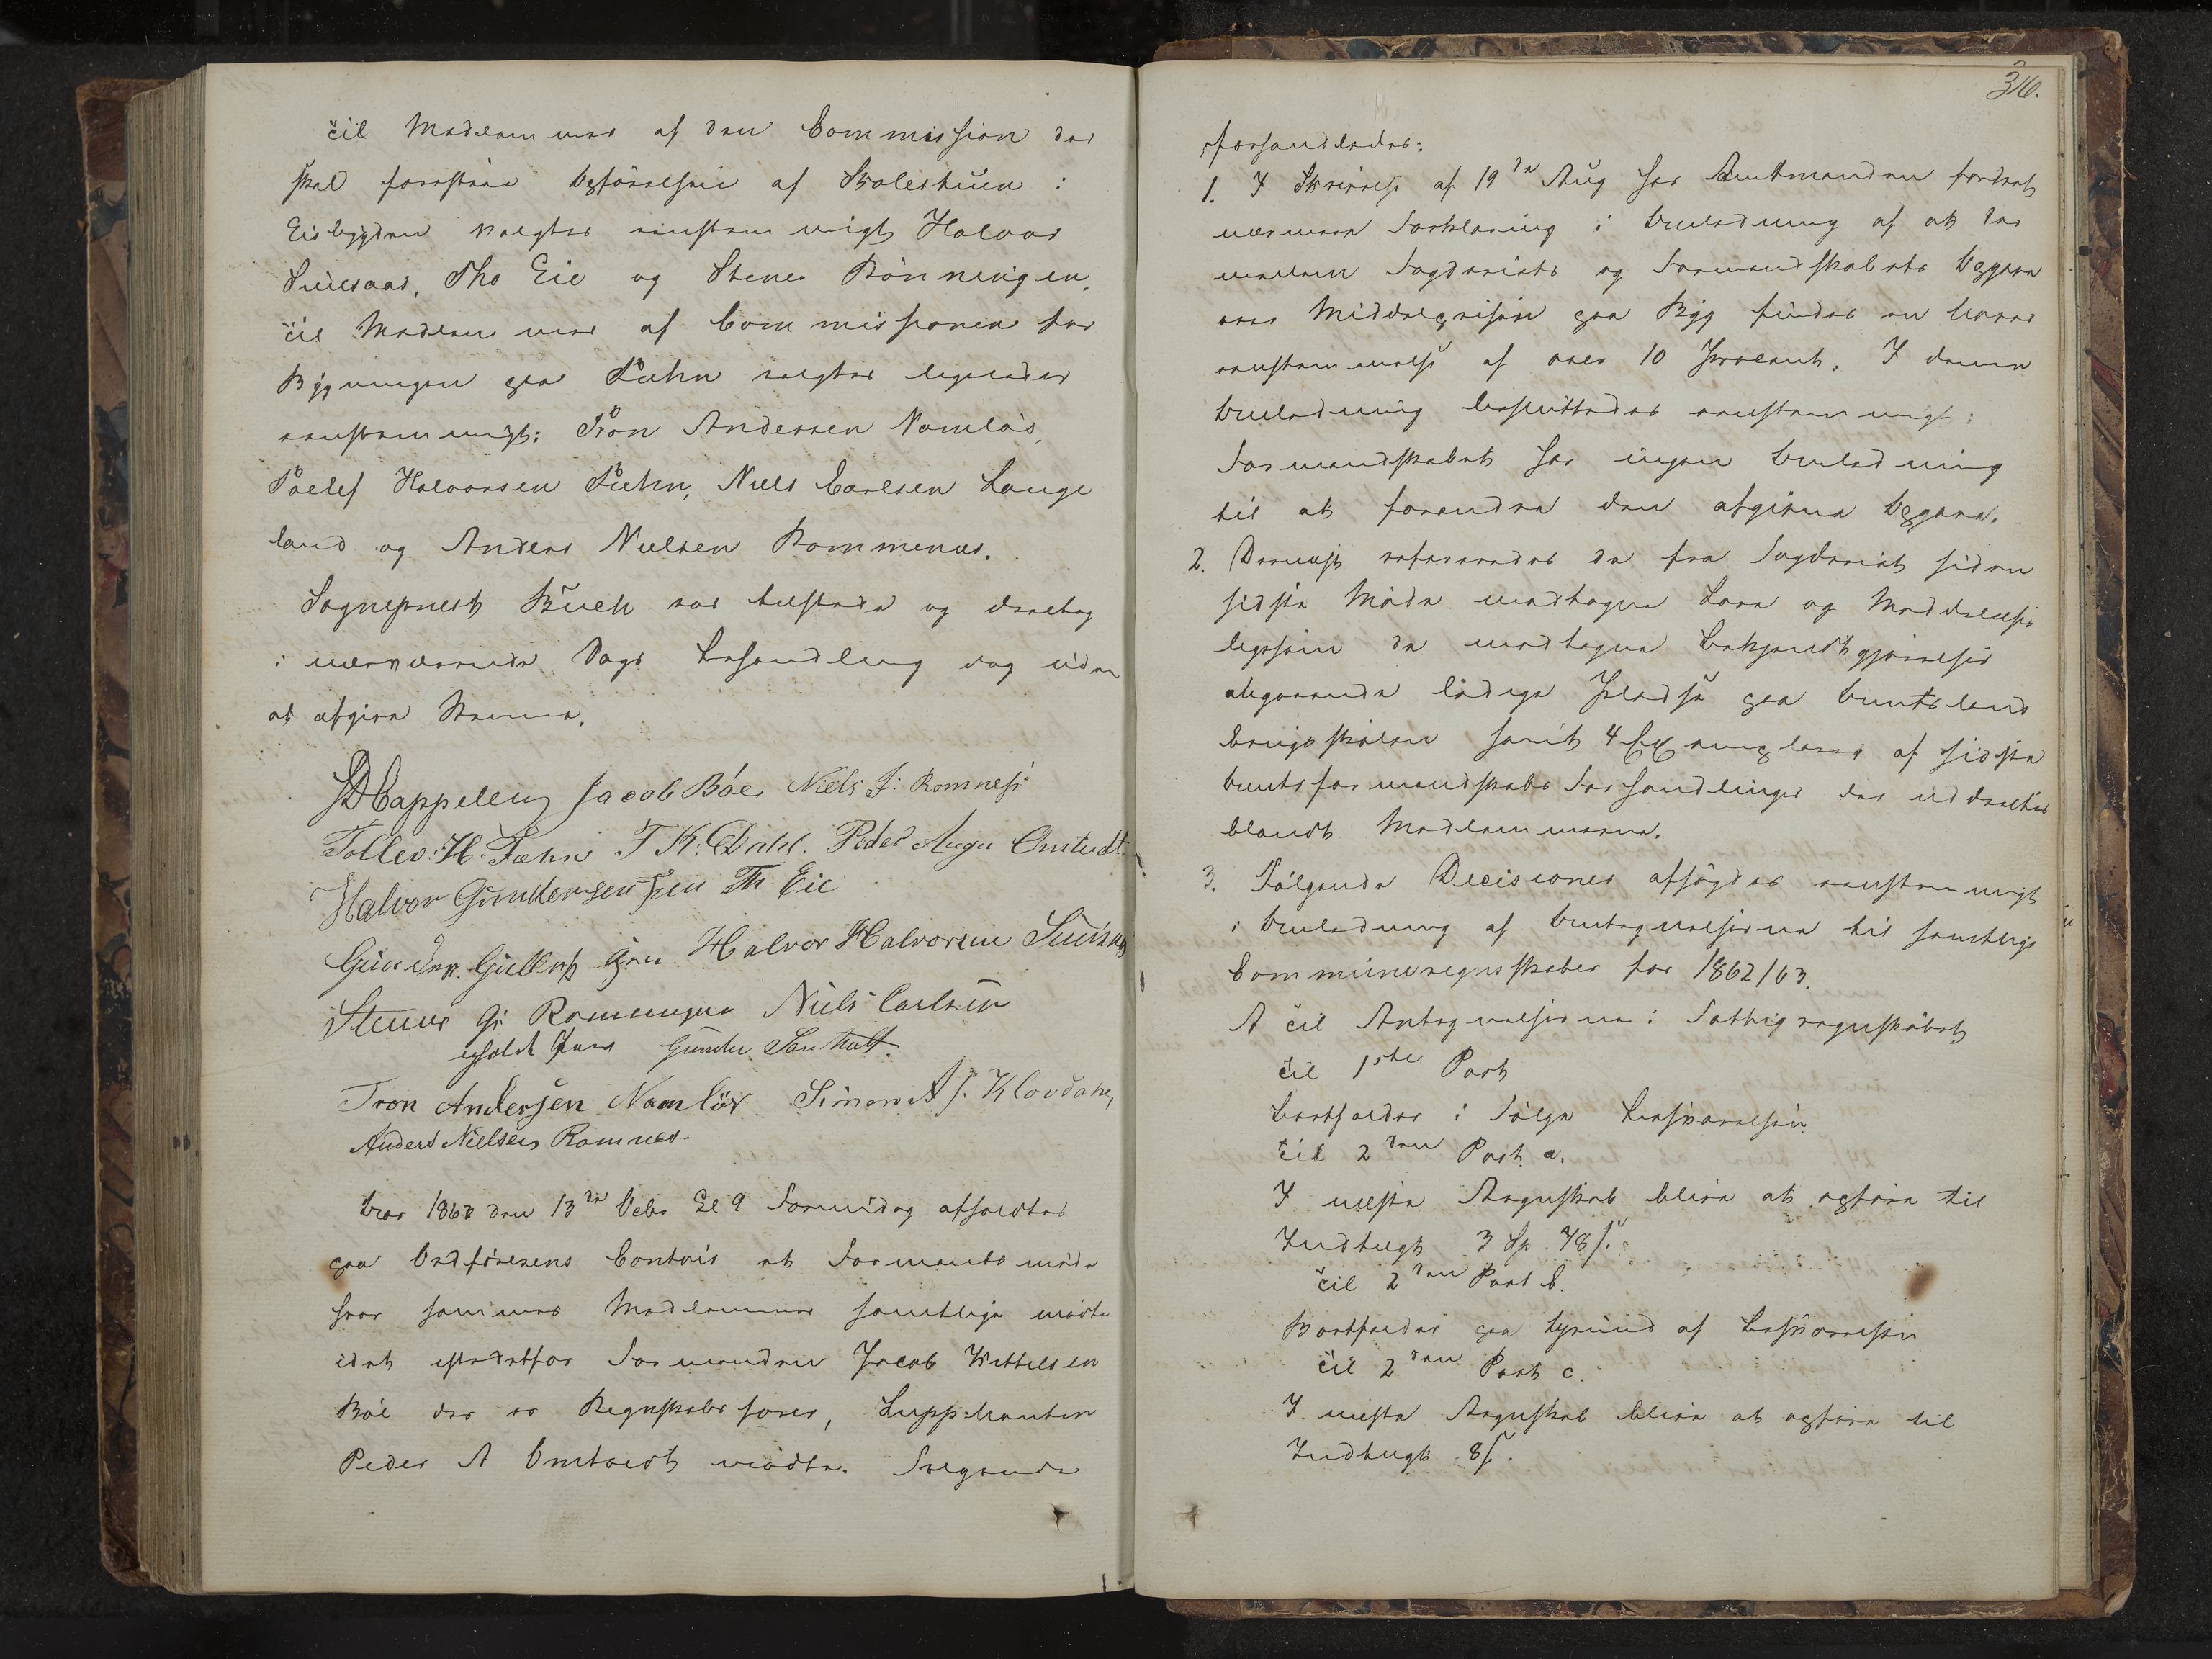 til Medlemmer af den Commission der
skal forestaae Opførelsen af Skolestuen i
Eisbygden valgtes eenstemmigt Halvor
Suusaas, Ths Eie og Stener Rønningen,
til Medlemmer af Commissionen for
Bygningen paa Fæhn valgtes ligeledes
eenstemmigt: Tron Andersen Namløs,
Tollef Halvorsen Fæhn, Niels Carlsen Lange
land og Anders Nielsen Rommenæs.
Sognepræst Buch var tilstede og deeltog
i nærværende Dags Behandling dog uden
at afgive Stemme.
D Cappelen Jacob Bøe Niels J: Romnes
Tollev: H: Fæhn T K: Dahl. Peder Aage Omtvedt
Halvor Gundersen Th Eie
Gunder Gullichs Halvor Halvorsen
Stener G: Rønningen Niels Carlsen
Gunder
Tron Andersen Namløs Simon A J. Klovdahl
Anders Nielsen Romnes.
Aar 1863 den 13de Octbr Kl 9 Formiddag afholdtes
paa Ordførerens Contoir et Formandsmøde
hvor sammes Medlemmer samtlige mødte
idet istedetfor Formanden Jacob Kittelsen
Bøe der er Regnskabsfører, Suppleanten
Peder A Omtvedt mødte. Følgende
316.
forhandledes:
1. I Skrivelse af 19de Aug har Amtmanden fordret
nærmere Forklaring i Anledning af at der
mellem Fogderiets og Formandskabets Opgave
over Middelprisen paa Byg findes en Uover
eensstemmelse af over 10 Procent. I denne
Anledning besluttedes eenstemmigt:
Formandskabet har ingen Anledning
til at forandre den afgivne Opgave.
2. Dernæst refereredes de fra Fogderiet siden
sidste Møde modtagne Love og Meddelelser
ligesom de modtagne Bekjendtgjørelser
angaaende ledige Pladse paa Amtets Land
brugsskolen samt 4 Exemplarer af sidste
Amtsformandskabs Forhandlinger der uddeeltes
blandt Medlemmerne.
3. Følgende Decisioner afsagdes eenstemmigt
i Anledning af Antegnelserne til samtlige
Communeregnskaber for 1862/63.
A til Antegnelserne i Fattigregnskabet
til 1ste Post
bortfalder i Følge Besvarelsen
til 2den Post a.
I næste Regnskab bliver at opføre til
Indtægt 3 Sp 78 s.
til 2den Post b.
Bortfalder paa Grund af Besvarelsen
til 2den Post c.
I næste Regnskab bliver at opføre til
Indtægt 8 s.